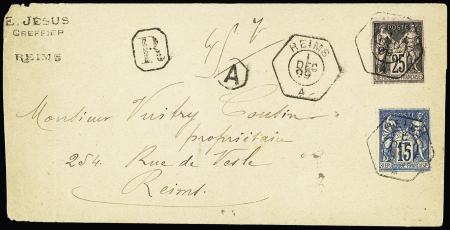 E. JESUS
GREFFIER
REIMS
R
A
REIMS
1
DEC
A
POSTE
25
POSTE
15
Monsieur Vuitry Coutin
propriétaire
254. Rue de Vesle
Reims.